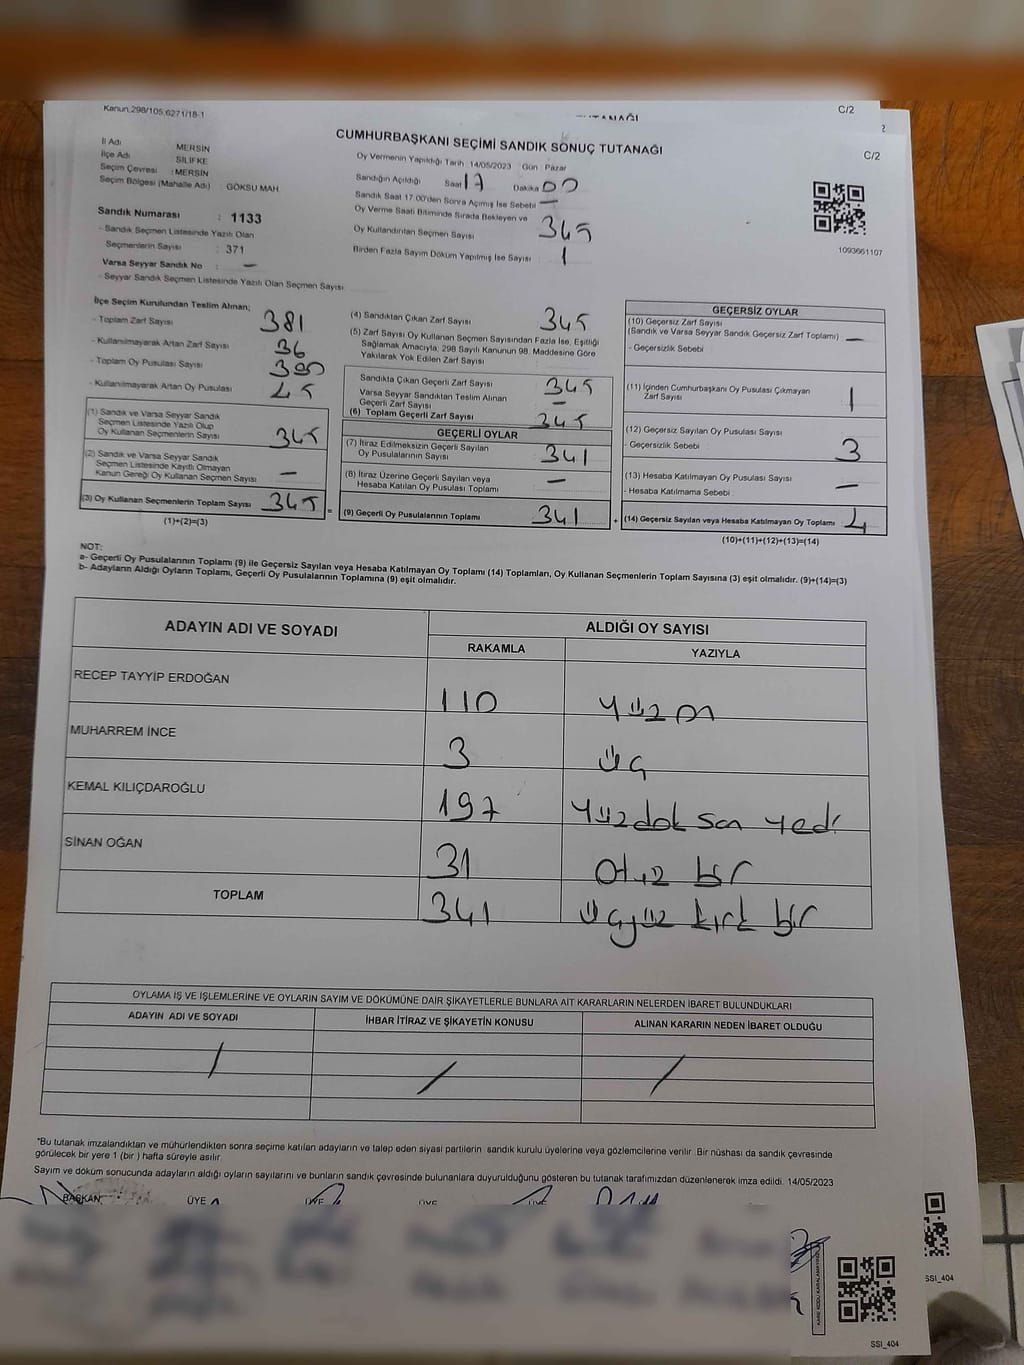 Kanun,298/105,6271/18-1
C/2
TUTANAĞI
2
C/2
CUMHURBAŞKANI SEÇİMİ SANDIK SONUÇ TUTANAĞI
İl Adı MERSİN
İlçe Adı SİLİFKE
Seçim Çevresi : MERSİN
Seçim Bölgesi (Mahalle Adı) GÖKSU MAH
Sandık Numarası : 1133
- Sandık Seçmen Listesinde Yazılı Olan
Seçmenlerin Sayısı : 371
Varsa Seyyar Sandık No : –
- Seyyar Sandık Seçmen Listesinde Yazılı Olan Seçmen Sayısı
Oy Vermenin Yapıldığı Tarih 14/05/2023 Gün Pazar
Sandığın Açıldığı Saat 17 Dakika 00
Sandık Saat 17:00'den Sonra Açılmış İse Sebebi –
Oy Verme Saati Bitiminde Sırada Bekleyen ve
Oy Kullandırılan Seçmen Sayısı 345
Birden Fazla Sayım Döküm Yapılmış İse Sayısı 1
1093661107
İlçe Seçim Kurulundan Teslim Alınan;
- Toplam Zarf Sayısı 381
- Kullanılmayarak Artan Zarf Sayısı 36
- Toplam Oy Pusulası Sayısı 390
- Kullanılmayarak Artan Oy Pusulası 45
(1) Sandık ve Varsa Seyyar Sandık
Seçmen Listesinde Yazılı Olup
Oy Kullanan Seçmenlerin Sayısı 345
(2) Sandık ve Varsa Seyyar Sandık
Seçmen Listesinde Kayıtlı Olmayan
Kanun Gereği Oy Kullanan Seçmen Sayısı –
(3) Oy Kullanan Seçmenlerin Toplam Sayısı 345 =
(1)+(2)=(3)
(4) Sandıktan Çıkan Zarf Sayısı 345
(5) Zarf Sayısı Oy Kullanan Seçmen Sayısından Fazla İse, Eşitliği
Sağlamak Amacıyla, 298 Sayılı Kanunun 98. Maddesine Göre
Yakılarak Yok Edilen Zarf Sayısı
Sandıkta Çıkan Geçerli Zarf Sayısı 345
Varsa Seyyar Sandıktan Teslim Alınan
Geçerli Zarf Sayısı –
(6) Toplam Geçerli Zarf Sayısı 345
GEÇERLİ OYLAR
(7) İtiraz Edilmeksizin Geçerli Sayılan
Oy Pusulalarının Sayısı 341
(8) İtiraz Üzerine Geçerli Sayılan veya
Hesaba Katılan Oy Pusulası Toplamı –
(9) Geçerli Oy Pusulalarının Toplamı 341 +
GEÇERSİZ OYLAR
(10) Geçersiz Zarf Sayısı
(Sandık ve Varsa Seyyar Sandık Geçersiz Zarf Toplamı) –
- Geçersizlik Sebebi
(11) İçinden Cumhurbaşkanı Oy Pusulası Çıkmayan
Zarf Sayısı 1
(12) Geçersiz Sayılan Oy Pusulası Sayısı
- Geçersizlik Sebebi 3
(13) Hesaba Katılmayan Oy Pusulası Sayısı
- Hesaba Katılmama Sebebi –
(14) Geçersiz Sayılan veya Hesaba Katılmayan Oy Toplamı 4
(10)+(11)+(12)+(13)=(14)
NOT:
a- Geçerli Oy Pusulalarının Toplamı (9) ile Geçersiz Sayılan veya Hesaba Katılmayan Oy Toplamı (14) Toplamları, Oy Kullanan Seçmenlerin Toplam Sayısına (3) eşit olmalıdır. (9)+(14)=(3)
b- Adayların Aldığı Oyların Toplamı, Geçerli Oy Pusulalarının Toplamına (9) eşit olmalıdır.
ADAYIN ADI VE SOYADI
ALDIĞI OY SAYISI
RAKAMLA YAZIYLA
RECEP TAYYİP ERDOĞAN 110 yüzon
MUHARREM İNCE 3 üç
KEMAL KILIÇDAROĞLU 197 yüzdoksan yedi
SİNAN OĞAN 31 otuz bir
TOPLAM 341 üçyüz kırk bir
OYLAMA İŞ VE İŞLEMLERİNE VE OYLARIN SAYIM VE DÖKÜMÜNE DAİR ŞİKAYETLERLE BUNLARA AİT KARARLARIN NELERDEN İBARET BULUNDUKLARI
ADAYIN ADI VE SOYADI İHBAR İTİRAZ VE ŞİKAYETİN KONUSU ALINAN KARARIN NEDEN İBARET OLDUĞU
/ / /
*Bu tutanak imzalandıktan ve mühürlendikten sonra seçime katılan adayların ve talep eden siyasi partilerin sandık kurulu üyelerine veya gözlemcilerine verilir. Bir nüshası da sandık çevresinde
görülecek bir yere 1 (bir) hafta süreyle asılır.
Sayım ve döküm sonucunda adayların aldığı oyların sayılarını ve bunların sandık çevresinde bulunanlara duyurulduğunu gösteren bu tutanak tarafımızdan düzenlenerek imza edildi. 14/05/2023
BAŞKAN ÜYE ÜYE ÜYE ÜYE
SSI_404
SSI_404